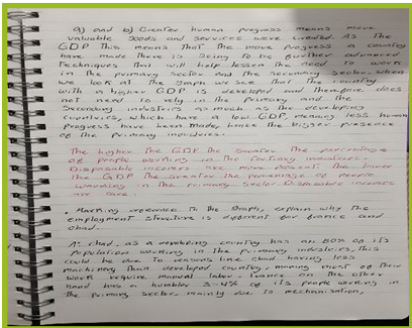 a) and b) Greater human progress means more
valuable goods and services were created. As the
GDP This means that the more progress a country
have made there is going to be further advanced
techniques that will help lessen the need to work
in the primary sector and the secondary sector. when
we look at the graph we see that the country
with a higher GDP is developed and therefore does
not need to rely in the primary and the
secondary industries as much as the developing
countries, which have a low GDP, meaning less human
progress have been made, hence the bigger presence
of the primary industries.
The higher the GDP the greater the percentage
of people working in the tertiary industries.
Disposable incomes are more present. The lower
the GDP the greater the percentage of people
working in the primary sector. Disposable incomes
are rare.
• Making reference to the graph, explain why the
employment structure is different for france and
chad.
A: chad, as a developing country has an 80% of its
population working in the primary industries, this
could be due to reasons like chad having less
machinery than developed country, meaning most of their
work require manual labor. france on the other
hand has a humbler 3-4% of its people working in
the primary sector, mainly due to mechanisation,